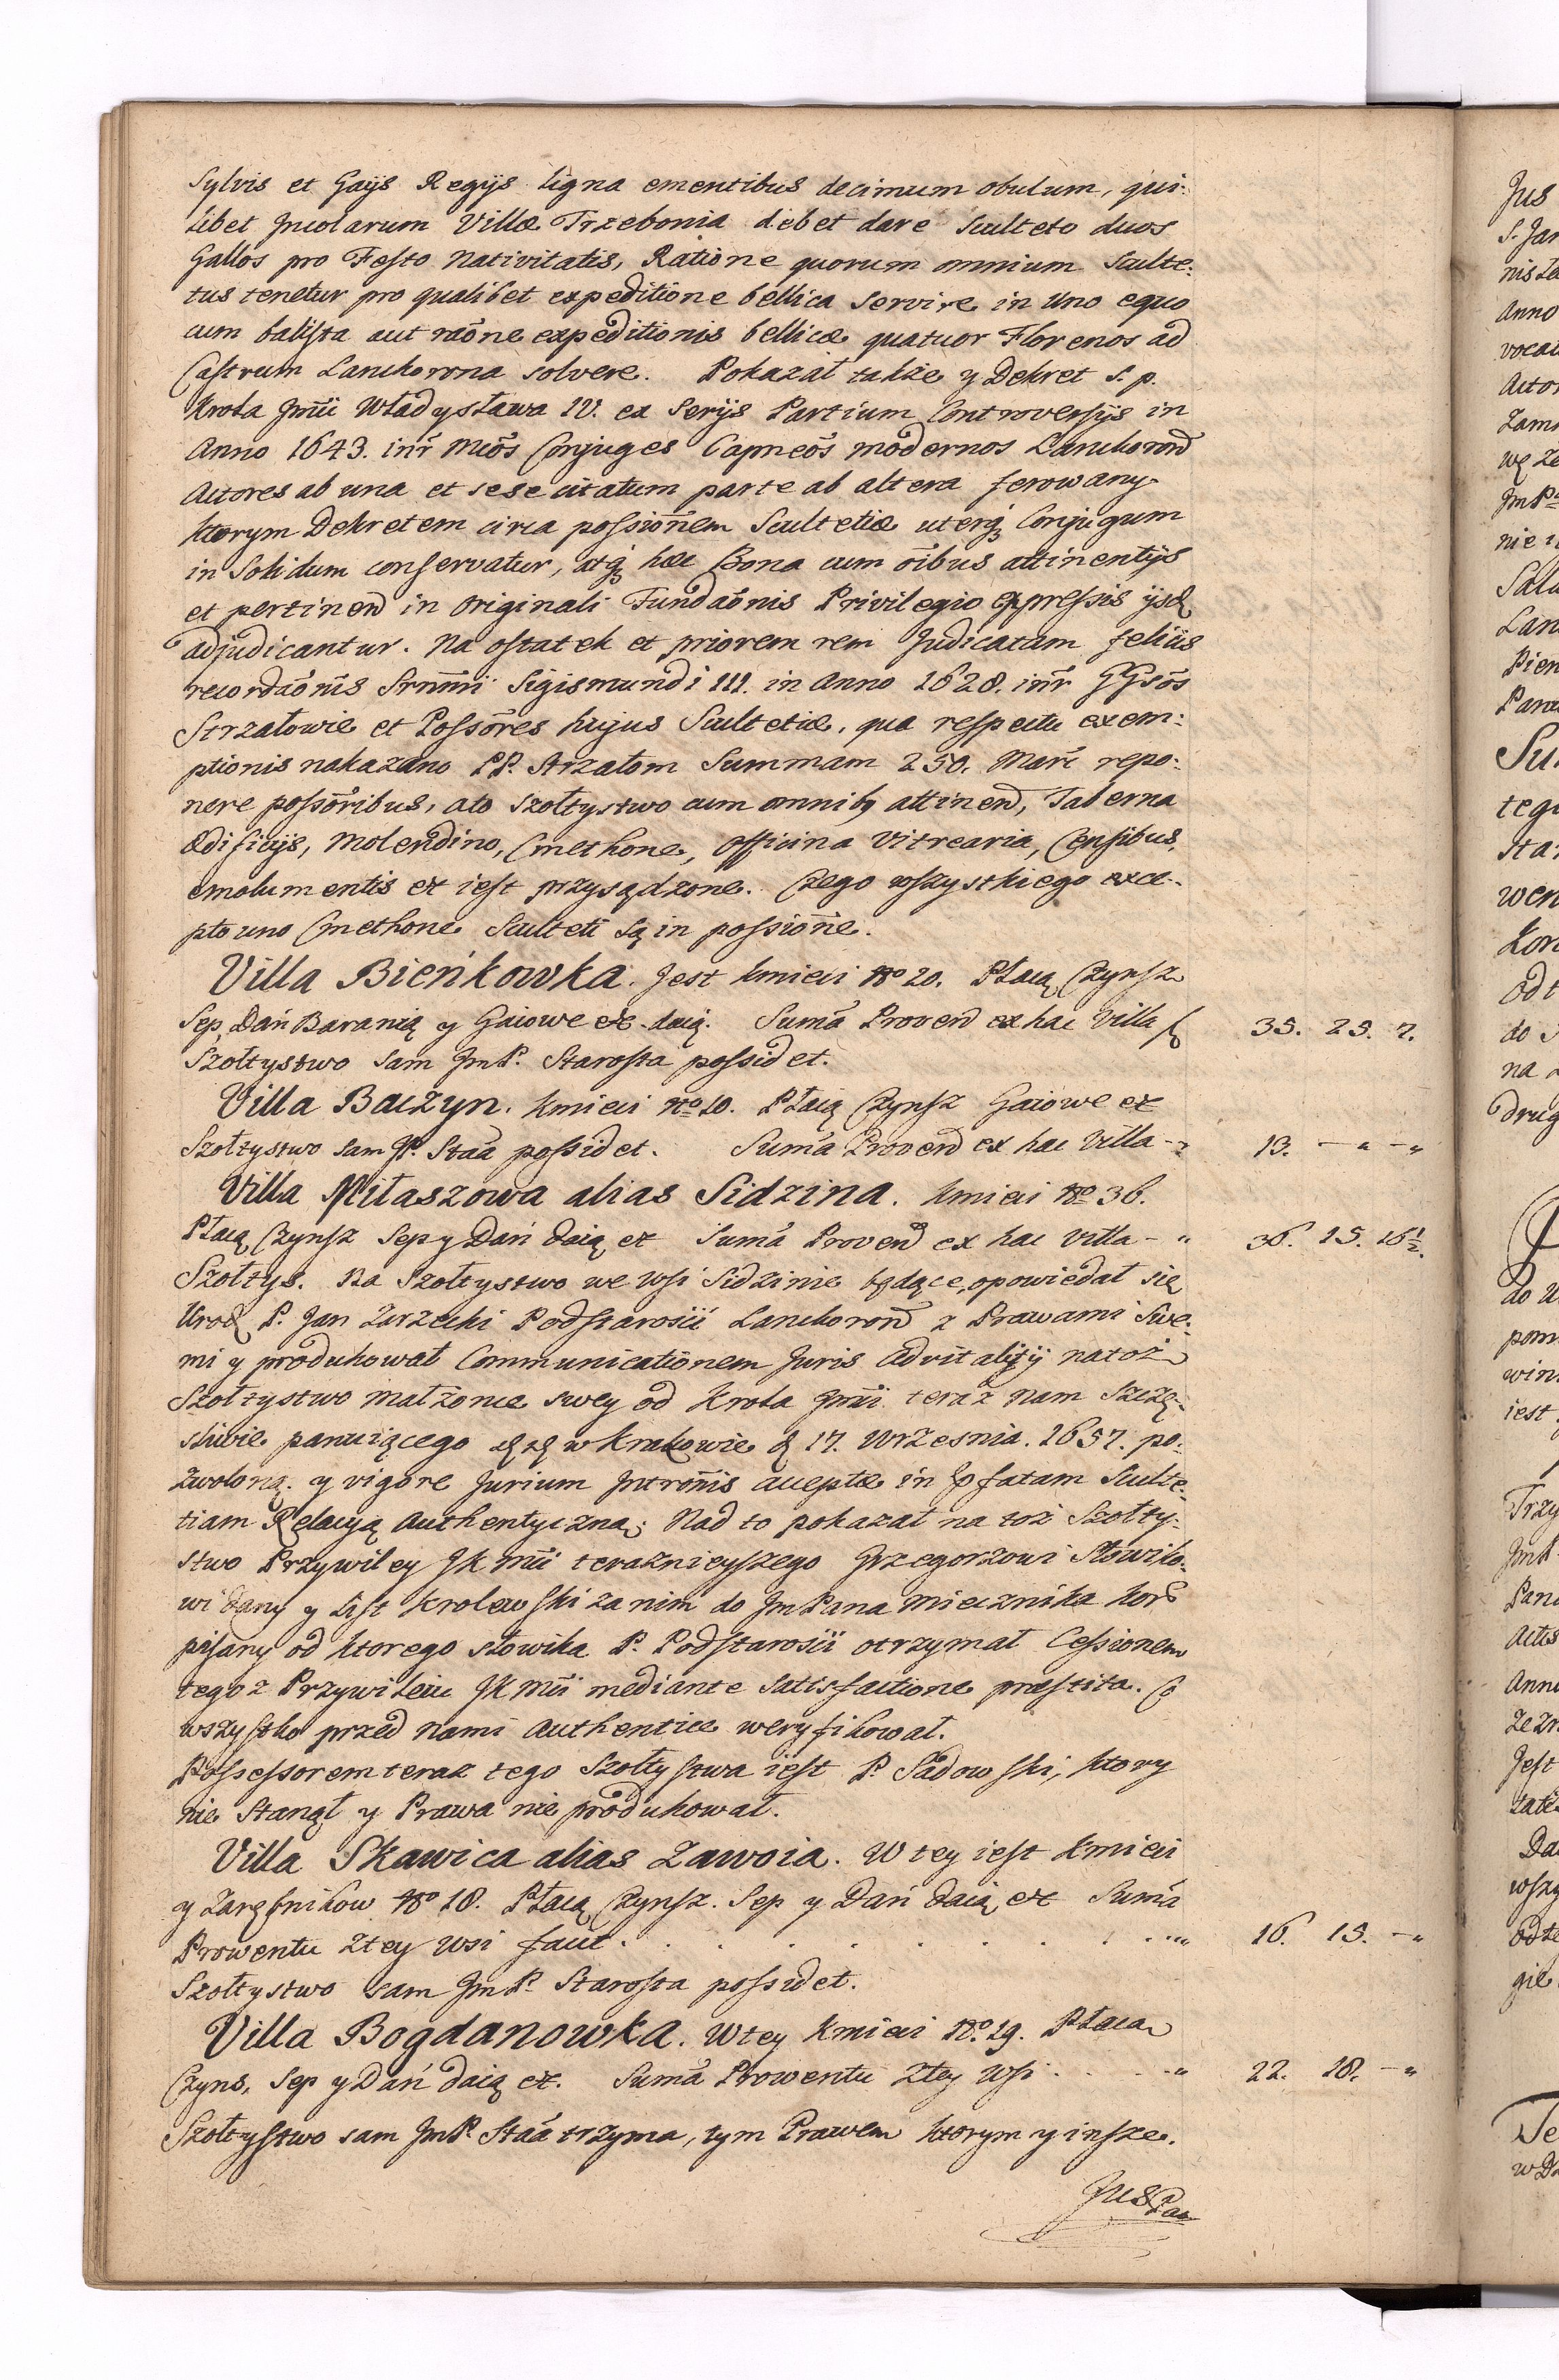 Sylvis et Gaijs Regijs ligna ementibus decimum obulum, qui:
libet Incolarum Villæ Trzebonia debet dare Sculteto duos
Gallos pro Festo Nativitatis, Ratione quorum omnium Sculte:
tus tenetur pro qualibet expeditione bellica servire in Uno equo
cum balista aut raone expeditionis bellicæ quatuor Florenos ad
Castrum Lanckorona solvere. Pokazał także y Dekret S. p.
Krola Jmci Władysława IV. ex Serijs Partium Controversijs in
Anno 1643. intr Mcos Conjuges Capneos modernos Lanckorond
Actores ab una et sese citatum parte ab altera ferowany
ktorym Dekretem circa possionem Scultetiæ uterq Conjugum
in Solidum conservatur, atq hæc Bona cum oibus attinentijs
et pertinend in Originali Fundaonis Privilegio expressis ijsd
adjudicantur. Na ostatek et priorem rem Judicatam feliis
recordaonis Srnmi Sigismundi III. in Anno 1628. intr GGsos
Strzałowie et Possores hujus Scultetiæ, qua respectu exem:
ptionis nakazano PP. Strzałom Summam 250. Marc repo:
nere possoribus, a to Szołtystwo cum omnibq attinend, Taberna
ædificijs, Molendino, Cmethone, Officina Vitrearia, Censibus,
emolumentis et iest przysądzone. Czego wszystkiego exce:
pto uno Cmethone Sculteti są in possione.
Villa Bieńkowka. Jest kmieci No 20. Płacą Czynsz
Sep, Dań Baranią y Gaiowe et daią. Suma Provend ex hac Villa f 35. 25. 7.
Szołtystwo sam Jm P. Starosta possidet.
Villa Baczyn. kmieci No 10. Płacą Czynsz Gaiowe et
Szołtystwo sam JP. Staa possidet. Suma Provend ex hac Villa - 13. - " - "
Villa Miłaszowa alias Sidzina. kmieci No 36.
Płacą Czynsz Sep y Dań daią et Suma Provend ex hac Villa - " 36. 15. 16½.
Szołtys. Na Szołtystwo we wsi Sidzinie będące, opowiedał się
Urod P. Jan Zarzecki Podstarosci Lanckorond z Prawami Swe:
mi y produkował Communicationem Juris advitalitij na toż
Szołtystwo małżonce swey od Krola Jmci teraz nam szczę:
sliwie panuiącego w krakowie d 17. Wrzesnia. 1657. po:
zwoloną. y vigore Jurium Intronis acceptæ in pfatam Sculte:
tiam Relacyą Authentyczną; Nad to pokazał na toż Szołty:
stwo Przywiley JK Mci teraznieyszego Grzegorzowi Słowiko:
wi dany y List Krolewski za nim do Jm Pana Miecznika kor
pisany od ktorego słowika P. Podstarosci otrzymał Cessionem
tegoz Przywileiu JK Mci mediante Satisfactione præstita. Co
wszystko przed nami Authentice weryfikował.
Possessorem teraz tego Szołtystwa iest P. Sadowski, ktory
nie Stanął y Prawa nie produkował.
Villa Skawica alias Zawoia. W tey iest kmieci
y Zarębnikow No 18. Płacą Czynsz. Sep y Dań daią et Suma
Prowentu z tey wsi facit . . . . . . . . . " 16. 15. - "
Szołtystwo sam Jm P. Starosta possidet.
Villa Bogdanowka. W tey kmieci No. 19. Płacą
Czyns, Sep y Dań daią et. Suma Prowentu z tey wsi . . . . " 22. 18. - "
Szołtystwo sam Jm P. Staa trzyma, tym Prawem ktorym y insze.
Jus Pa